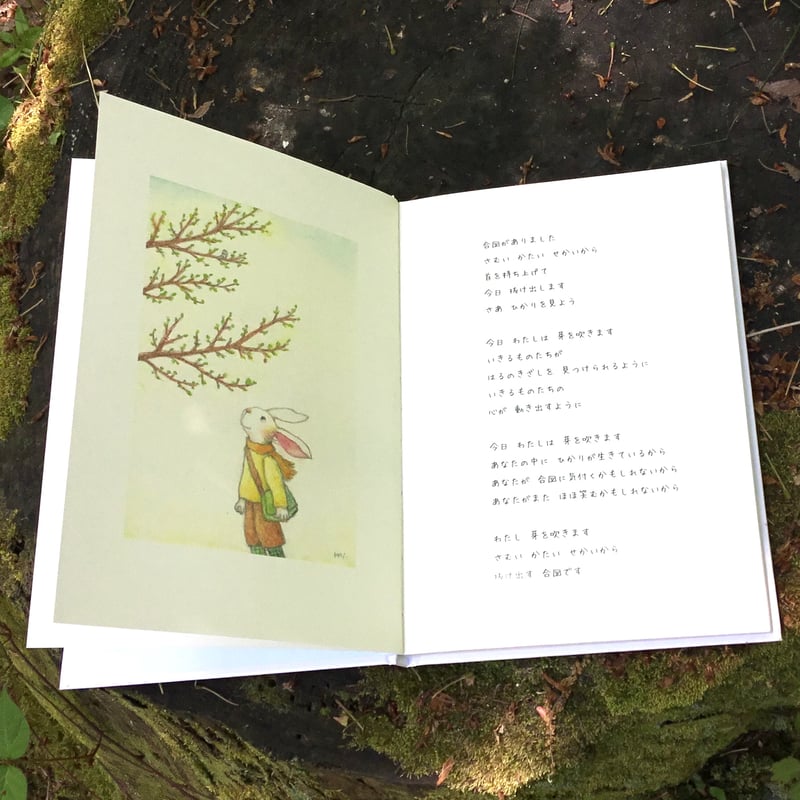 合図がありました
さむい かたい せかいから
首を持ち上げて
今日 抜け出します
さあ ひかりを見よう
今日 わたしは 芽を吹きます
いきるものたちが
はるのきざしを 見つけられるように
いきるものたちの
心が 動き出すように
今日 わたしは 芽を吹きます
あなたの中に ひかりが生きているから
あなたが 合図に気付くかもしれないから
あなたがまた ほほ笑むかもしれないから
わたし 芽を吹きます
さむい かたい せかいから
抜け出す 合図です